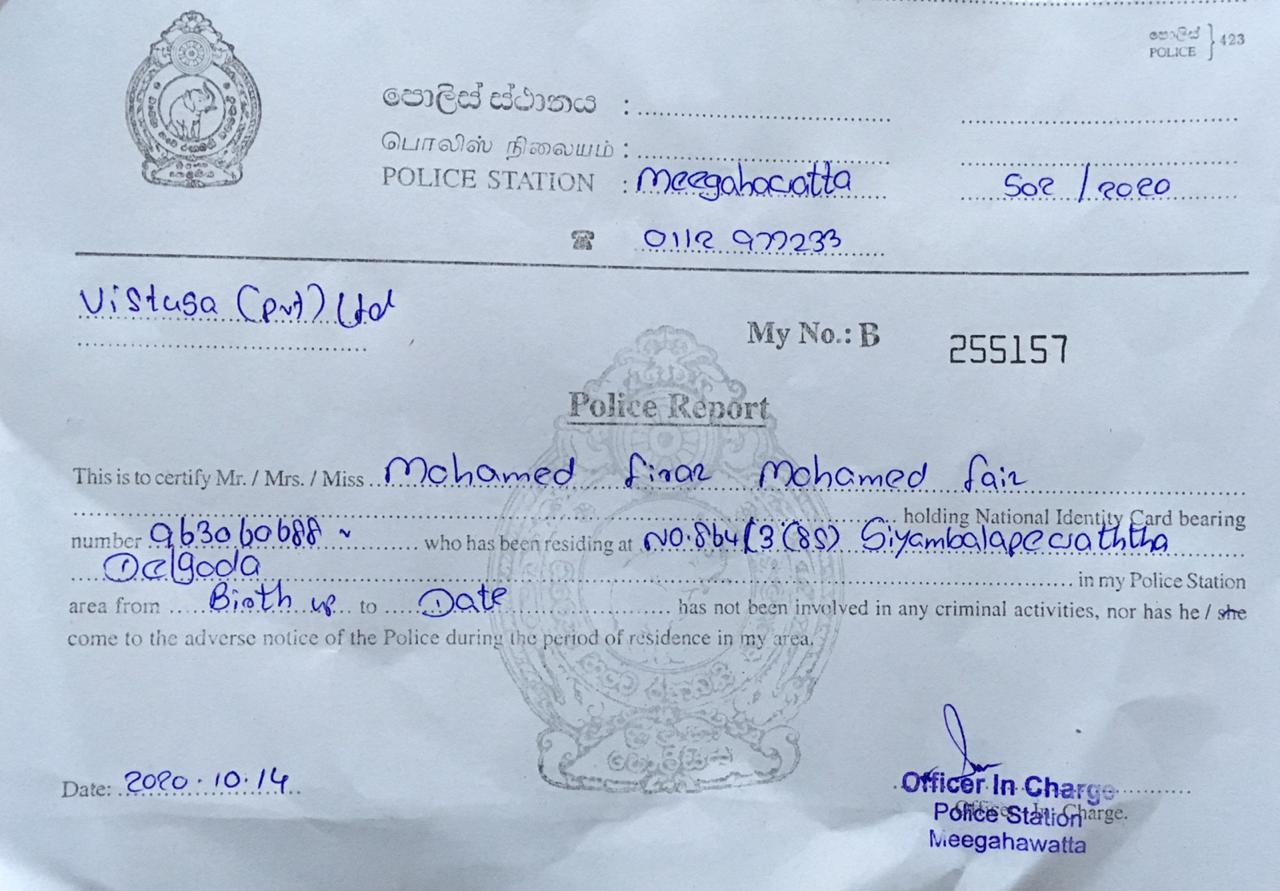 පොලිස්
POLICE } 423
පොලිස් ස්ථානය :
பொலிஸ் நிலையம் :
POLICE STATION : Meegahawatta 502 / 2020
0112 977233
Vistusa (Pvt) Ltd
My No.: B 255157
Police Report
This is to certify Mr. / Mrs. / Miss Mohamed firaz Mohamed faiz
holding National Identity Card bearing
number 963060688 v who has been residing at No. 864/3/85) Siyambalapewaththa
Delgoda in my Police Station
area from Birth up to Date has not been involved in any criminal activities, nor has he / she
come to the adverse notice of the Police during the period of residence in my area.
Date: 2020.10.14
Officer In Charge
Officer In Charge.
Police Station
Meegahawatta